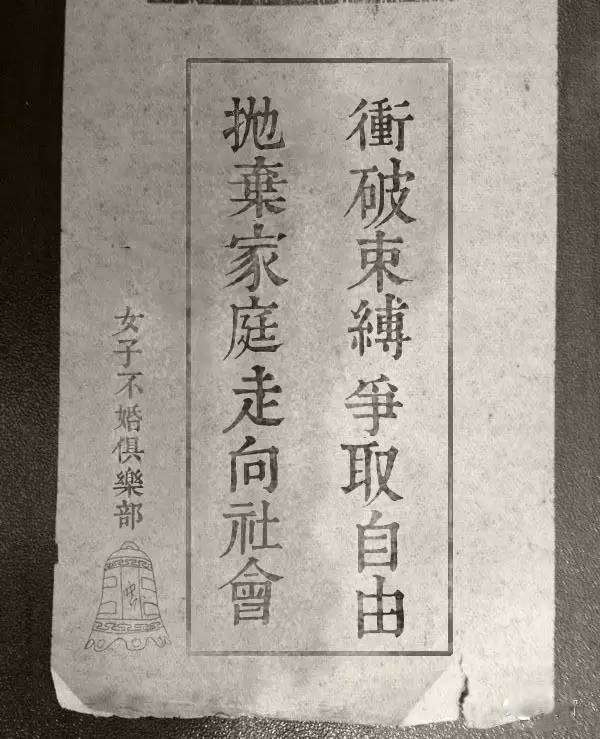 衝破束縛爭取自由
拋棄家庭走向社會
女子不婚俱樂部